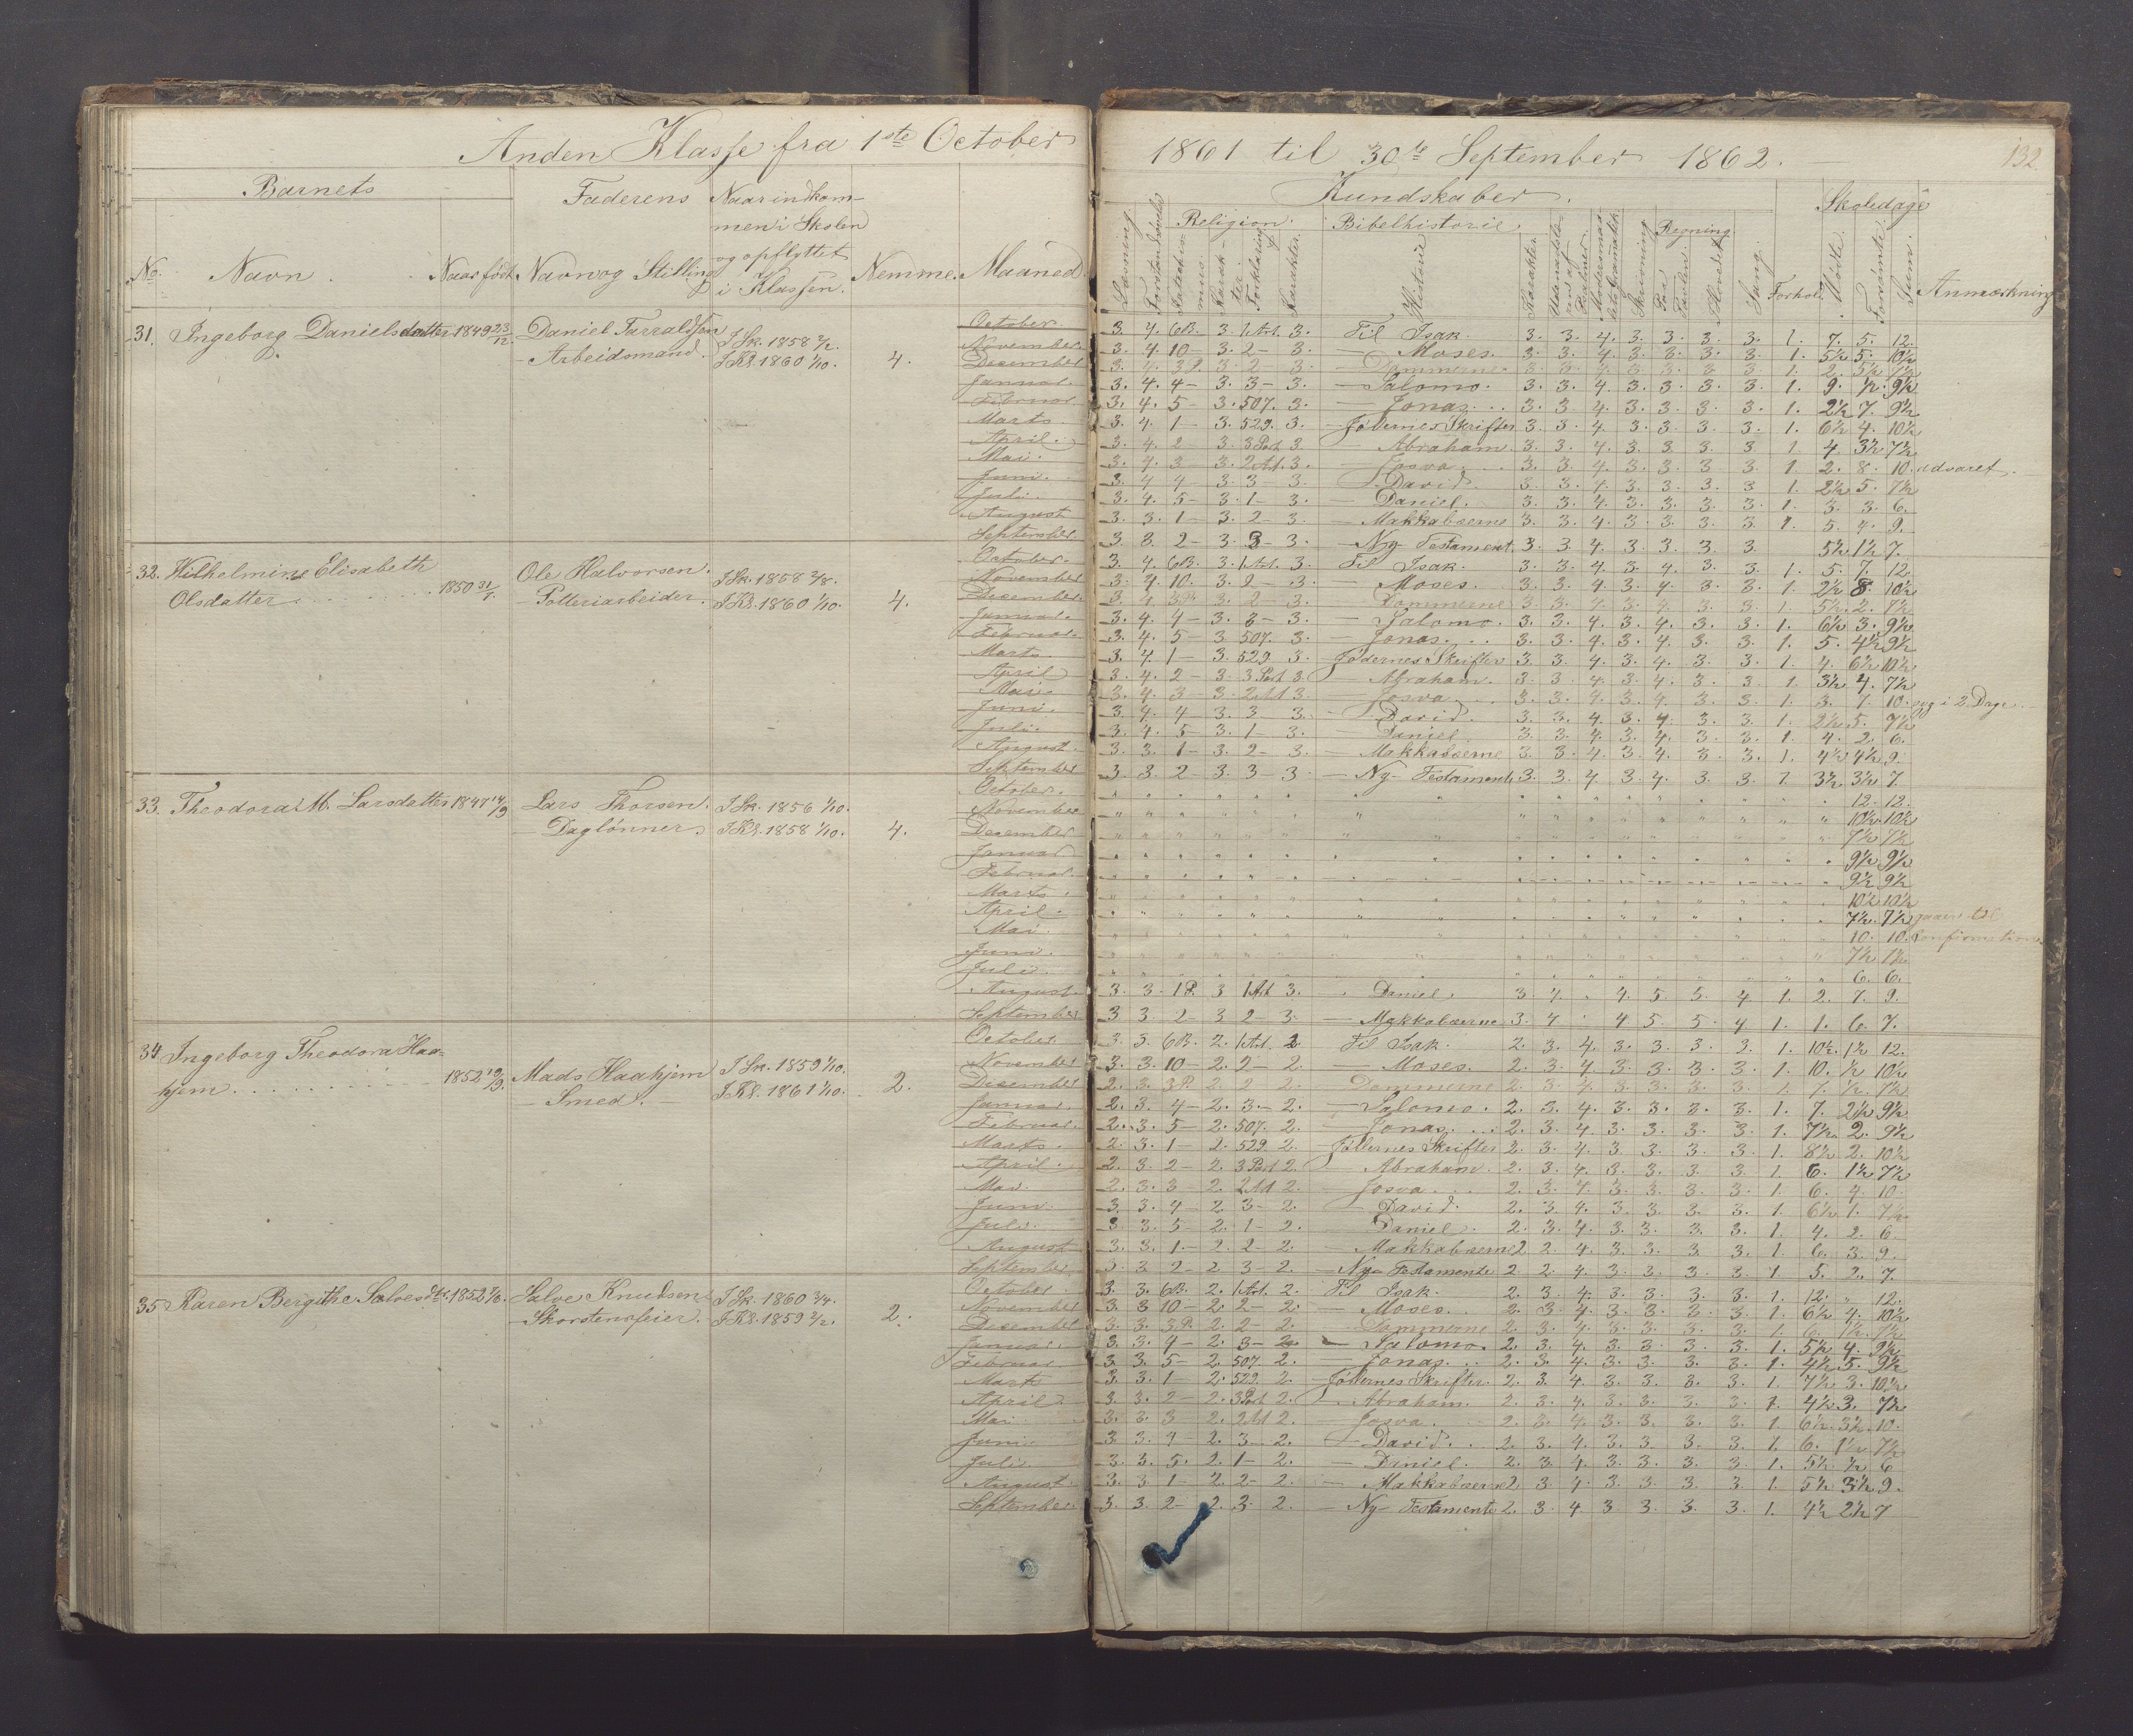 Anden Klasse fra 1ste October
1861 til 30te September 1862.
132
Barnets
Faderens
Naar indkommen i Skolen og opflyttet i Klassen.
Kundskaber.
Skoledage
No
Navn.
Naar født
Navn og Stilling
Nemme.
Maaned
Læsning
Religion.
Bibelhistorie
Historie
Karakter
Skrivning
Regning
Sang.
Forhold
Mødte.
Forsømte
Sum.
Anmærkning
31. Ingeborg Danielsdatter 1849 23/12
Daniel Tarraldsen
- Arbeidsmand.
I Sk. 1858 7/2.
I Kl. 1860 1/10.
4.
October. 3. 4. 6B. 3. 1 Art. 3. Til Isak. 3. 3. 4. 3. 3. 3. 3. 1. 7. 5. 12.
November. 3. 4. 10 - 3. 2 - 3. - Moses. 3. 3. 4. 3. 3. 3. 3. 1. 5½ 5. 10½
December 3. 4. 3P. 3. 2 - 3. - Dommerne. 3. 3. 4. 3. 3. 3. 3. 1. 2. 5½ 7½
Januar. 3. 4. 4 - 3. 3 - 3. - Salomo. 3. 3. 4. 3. 3. 3. 3. 1. 9. ½. 9½
Februar. 3. 4. 5 - 3. 507. 3. - Jonas. 3. 3. 4. 3. 3. 3. 3. 1. 2½ 7. 9½
Marts. 3. 4. 1 - 3. 529. 3. - Jødernes Skrifter 3. 3. 4. 3. 3. 3. 3. 1. 6½ 4. 10½
April. 3. 4. 2 - 3. 3 Part 3. - Abraham. 3. 3. 4. 3. 3. 3. 3. 1. 4. 3½ 7½
Mai. 3. 4. 3 - 3. 2 Art. 3. - Josva. 3. 3. 4. 3. 3. 3. 3. 1. 2. 8. 10. udvaret.
Juni. 3. 4. 4 - 3. 3 - 3. - David. 3. 3. 4. 3. 3. 3. 3. 1. 2½ 5. 7½
Juli. 3. 4. 5 - 3. 1 - 3. - Daniel. 3. 3. 4. 3. 3. 3. 3. 1. 3. 3. 6.
August 3. 3. 1 - 3. 2 - 3. - Makkabæerne 3. 3. 4. 3. 3. 3. 3. 1. 5. 4. 9.
September. 3. 3. 2 - 3. 3 - 3. - Ny Testament. 3. 3. 4. 3. 3. 3. 3. 5½ 1½ 7.
32. Wilhelmine Elisabeth
Olsdatter 1850 31/1.
Ole Halvorsen.
- Potteriarbeider.
I Sk. 1858 2/8.
I Kl. 1860 1/10.
4.
October. 3. 4. 6B. 3. 1 Art. 3. Til Isak. 3. 3. 4. 3. 4. 3. 3. 1. 5. 7. 12.
November 3. 4. 10. 3. 2 - 3. - Moses. 3. 3. 4. 3. 4. 3. 3. 1. 2½ 8. 10½
December. 3. 4. 3P. 3. 2 - 3. - Dommerne 3. 3. 4. 3. 4. 3. 3. 1. 5½. 2. 7½
Januar. 3. 4. 4 - 3. 3 - 3. - Salomo. 3. 3. 4. 3. 4. 3. 3. 1. 6½ 3. 9½
Februar. 3. 4. 5 - 3 507. 3. - Jonas. 3. 3. 4. 3. 4. 3. 3. 1. 5. 4½ 9½
Marts. 3. 4. 1 - 3. 529 3. - Jødernes Skrifter 3. 3. 4. 3. 4. 3. 3. 1. 4. 6½ 10½
April 3. 4. 2 - 3. 3 Part 3. - Abraham. 3. 3. 4. 3. 4. 3. 3. 1. 3½ 4. 7½
Mai. 3. 4. 3 - 3. 2 Art 3. - Josva. 3. 3. 4. 3. 4. 3. 3. 1. 3. 7. 10. syg i 2 Dage.
Juni. 3. 4. 4 - 3. 3 - 3. - David. 3. 3. 4. 3. 4. 3. 3. 1. 2½ 5. 7½
Juli. 3. 4. 5 - 3. 1 - 3. - Daniel. 3. 3. 4. 3. 4. 3. 3. 1. 4. 2. 6.
August. 3. 3. 1 - 3. 2 - 3. - Makkabæerne 3. 3. 4. 3. 4. 3. 3. 1. 4½ 4½ 9.
September 3. 3. 2 - 3. 3 - 3 - Ny Testamente 3. 3. 4. 3. 4. 3. 3. 1. 3½ 3½ 7.
33. Theodora M. Larsdatter 1847 14/9
Lars Thorsen.
- Daglønner.
I Sk. 1856 1/10.
I Kl. 1858 1/10.
4.
October. 12. 12.
November 10½. 10½
December 7½ 7½
Januar 9½ 9½
Februar. 9½ 9½
Marts. 10½ 10½
April. 7½. 7½ gaaer til
Mai. 10. 10. Confirmation
Juni. 7½ 7½.
Juli. 6. 6.
August. 3. 3. 1P. 3 1 Art 3. - Daniel. 3. 4. 4. 5. 5. 4 1. 2. 7. 9.
September 3 3. 2 - 3 2 - 3. - Makkabæerne 3. 4 4 5. 5. 4 1. 1. 6. 7.
34. Ingeborg Theodora Haa=
hjem 1852 19/9.
Mads Haahjem
- Smed. -
I Sk. 1859 1/10.
I Kl. 1861 1/10.
2.
October. 3. 3. 6B. 2. 1 Art. 2. Til Isak. 2. 3. 4. 3. 3. 3. 3. 1. 10½. 1½ 12.
November 3. 3. 10 - 2. 2 - 2. - Moses. 2. 3. 4. 3. 3. 3. 3. 1. 10. ½ 10½
December 2. 3. 3P. 2. 2 2. - Dommerne 2. 3. 4. 3. 3. 3. 3. 1. 7. ½. 7½
Januar. 2. 3. 4 - 2. 3 - 2. - Salomo. 2. 3. 4. 3. 3. 3. 3. 1. 7. 2½ 9½
Februar. 2. 3. 5 - 2. 507. 2. - Jonas. 2. 3. 4. 3. 3. 3. 3. 1. 7½. 2. 9½
Marts. 2. 3. 1 - 2. 529. 2. - Jødernes Skrifter 2. 3. 4. 3. 3. 3. 3. 1. 8½ 2. 10½
April. 2. 3. 2 - 2. 3 Part 2. - Abraham. 2. 3. 4. 3. 3. 3. 3. 1. 6. 1½ 7½
Mai. 2. 3. 3 - 2. 2 Art 2. - Josva. 2. 3. 4. 3. 3. 3. 3. 1. 6. 4. 10.
Juni. 3. 3. 4 - 2. 3 - 2. - David. 2. 3. 4. 3. 3. 3. 3. 1. 6½ 1. 7½
Juli. 3. 3. 5 - 2. 1 - 2. - Daniel. 2. 3. 4. 3. 3. 3. 3. 1. 4. 2. 6.
August 3. 3. 1 - 2. 2 - 2. - Makkabæerne 2 2. 4. 3. 3. 3. 3. 1. 6. 3. 9.
September 3. 3. 2 - 2. 3 - 2. - Ny Testamente 2. 2. 4. 3. 3. 3. 3. 1. 5. 2. 7.
35 Karen Bergithe Salvesdtr. 1852
Salve Knudsen
- Skorstensfeier.
I Sk. 1860 3/4.
I Kl. 1859 2/2.
2.
October. 3. 3. 6B. 2. 1 Art. 2. Til Isak. 2. 3. 4. 3. 3. 3. 3. 1. 12. " 12.
November 3. 3 10 - 2. 2 - 2. - Moses. 2. 3. 4. 3. 3. 3. 3. 1. 6½ 4. 10½
December 3. 3. 3P. 2. 2 - 2. - Dommerne 2. 3. 4. 3. 3. 3. 3. 1. 6. 1½. 7½
Januar. 3. 3. 4 - 2. 3 - 2. - Salomo. 2. 3. 4. 3. 3. 3. 3. 1. 5½ 4. 9½
Februar. 3. 3. 5 - 2. 507. 2. - Jonas. 2. 3. 4. 3. 3. 3. 3. 1. 4½ 5. 9½
Marts 3. 3. 1 - 2. 529. 2. - Jødernes Skrifter. 2. 3. 4. 3. 3. 3. 3. 1. 7½ 3. 10½
April. 3. 3. 2 - 2. 3 Part 2. - Abraham. 2. 3. 4. 3. 3. 3. 3. 1. 4½ 3. 7½
Mai 3. 3. 3 2. 2 Art 2. - Josva. 2. 3. 4. 3. 3. 3. 3. 1. 6½. 3½. 10.
Juni. 3. 3. 4 - 2. 3 - 2. - David. 2. 3. 4. 3. 3. 3. 3. 1. 6. 1½ 7½
Juli. 3. 3. 5. 2. 1 - 2. - Daniel. 2. 3. 4. 3. 3. 3. 3. 1. 5½. ½ 6
August. 3. 3 1 - 2. 2 - 2. - Makkabæerne 2 3 4. 3. 3. 3. 3. 1. 5½ 3½ 9.
September. 3. 3. 2 - 2. 3. 2. - Ny Testamente 2. 3. 4. 3 3. 3. 3. 1. 4½ 2½ 7